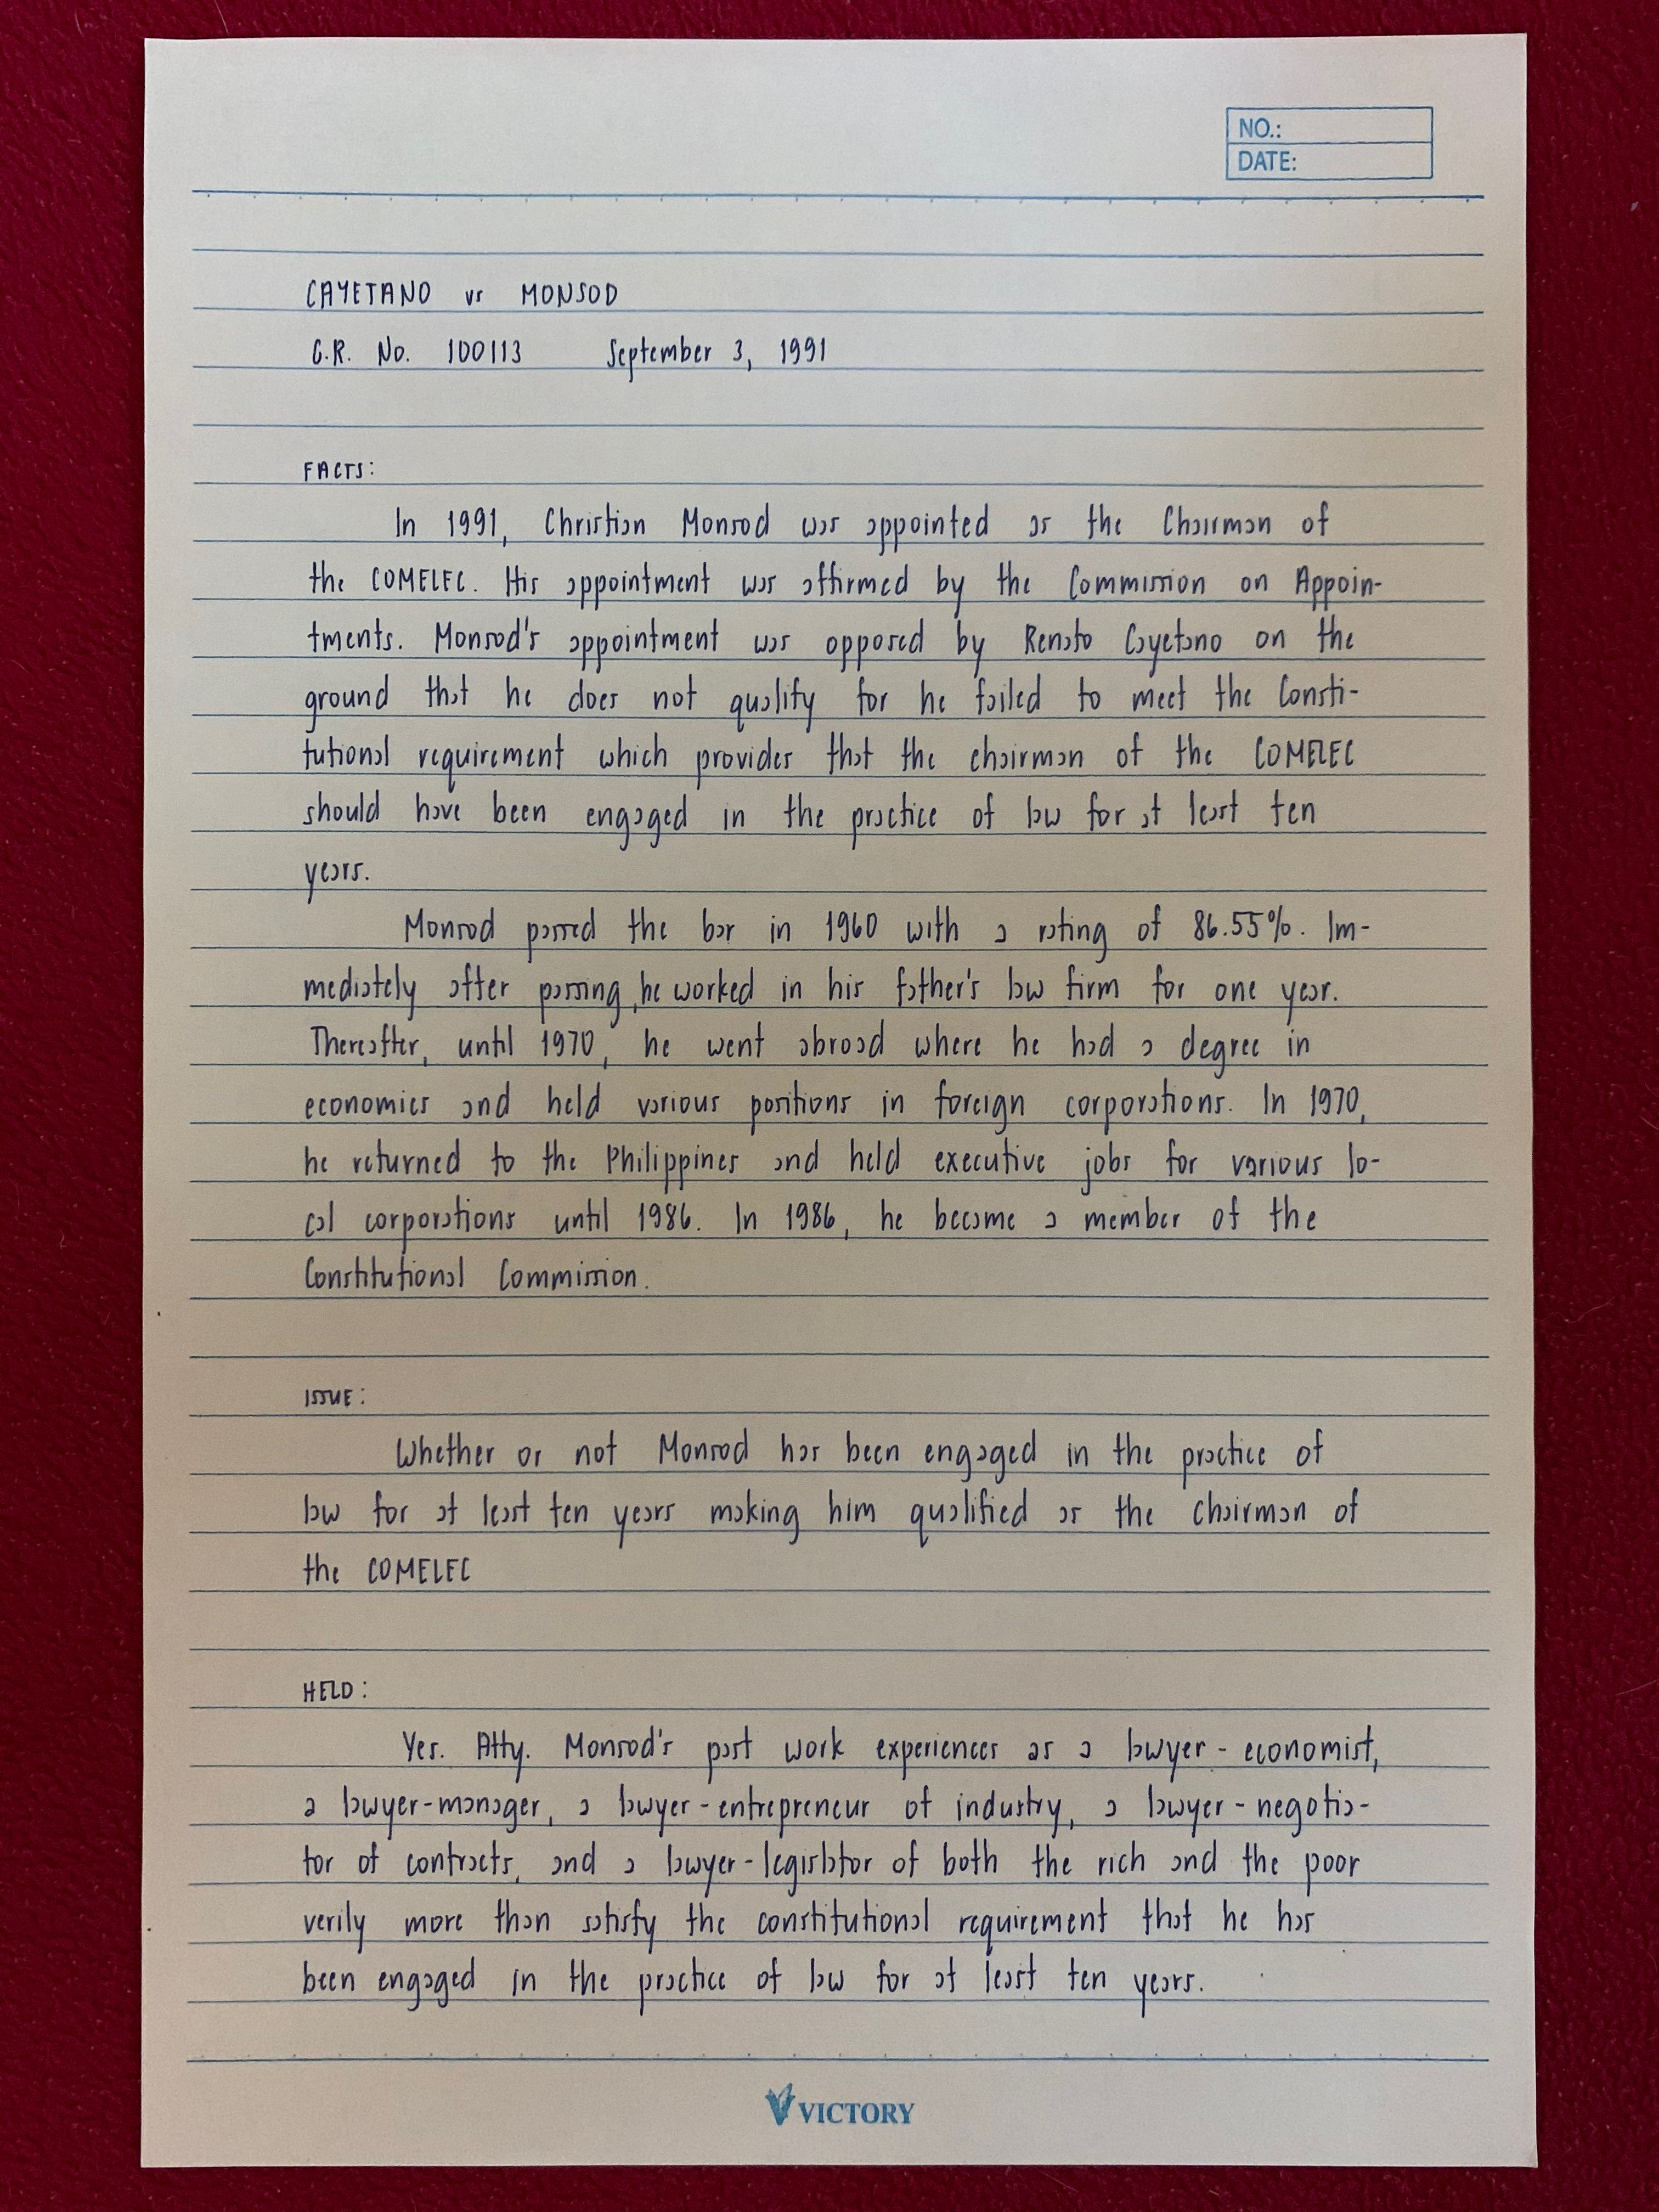 NO.:
DATE:
CAYETANO vs MONSOD
G.R. No. 100113 September 3, 1991
FACTS:
In 1991, Christian Monsod was appointed as the Chairman of
the COMELEC. His appointment was affirmed by the Commission on Appoin-
tments. Monsod's appointment was opposed by Renato Cayetano on the
ground that he does not qualify for he failed to meet the Consti-
tutional requirement which provides that the chairman of the COMELEC
should have been engaged in the practice of law for at least ten
years.
Monsod passed the bar in 1960 with a rating of 86.55%. Im-
mediately after passing, he worked in his father's law firm for one year.
Thereafter, until 1970, he went abroad where he had a degree in
economics and held various positions in foreign corporations. In 1970,
he returned to the Philippines and held executive jobs for various lo-
cal corporations until 1986. In 1986, he became a member of the
Constitutional Commission.
ISSUE:
Whether or not Monsod has been engaged in the practice of
law for at least ten years making him qualified as the Chairman of
the COMELEC
HELD:
Yes. Atty. Monsod's past work experiences as a lawyer - economist,
a lawyer-manager, a lawyer - entrepreneur of industry, a lawyer - negotia-
tor of contracts, and a lawyer-legislator of both the rich and the poor
verily more than satisfy the constitutional requirement that he has
been engaged in the practice of law for at least ten years.
VICTORY